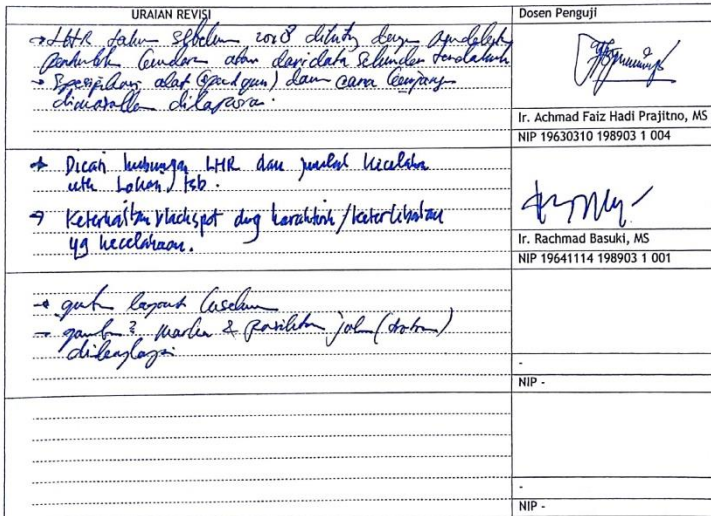 URAIAN REVISI
Dosen Penguji
→ LHR tahun sebelum 2018 dihitung dengan
atau dari data sekunder terdahulu
→ Spesifikasi alat (speed gun) dan cara
dilaporan.
Ir. Achmad Faiz Hadi Prajitno, MS
NIP 19630310 198903 1 004
→ Dicari hubungan LHR dan jumlah kecelakaan
utk Lokasi tsb.
→ Keterkaitan blackspot dng karakteristik/keterlibatan
yg kecelakaan.
Ir. Rachmad Basuki, MS
NIP 19641114 198903 1 001
→ layout
→ gambar2 marka & jalan
dilengkapi
-
NIP -
-
NIP -